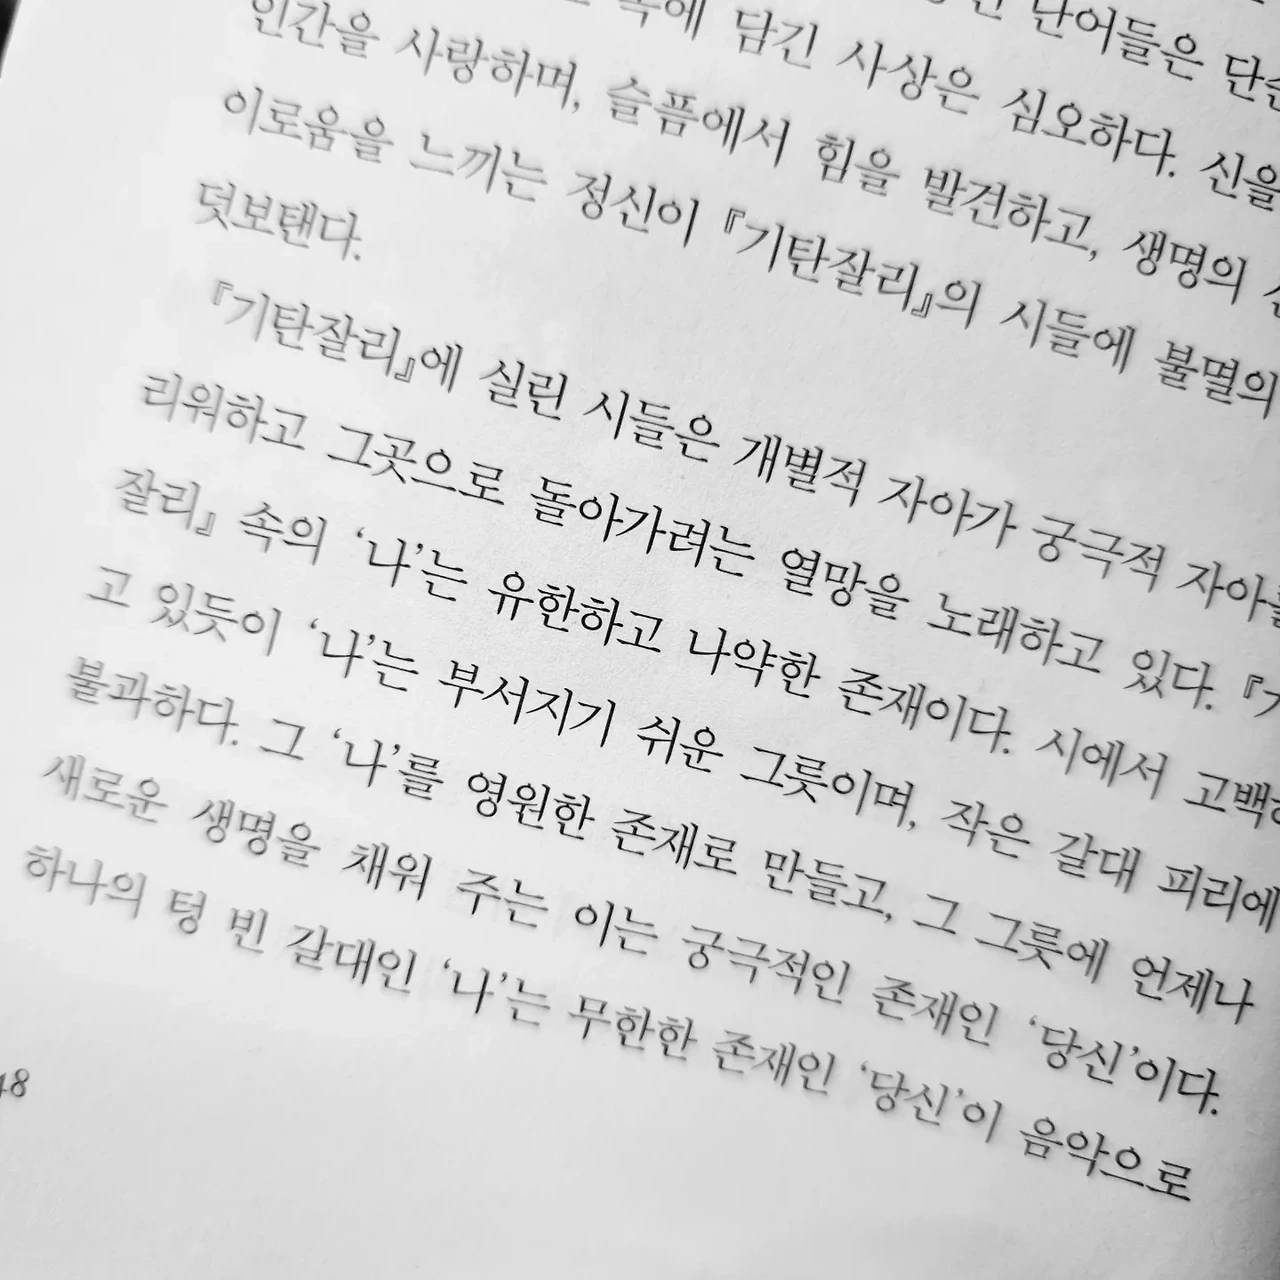 단어들은
속에 담긴 사상은 심오하다. 신을
인간을 사랑하며, 슬픔에서 힘을 발견하고, 생명의
이로움을 느끼는 정신이 『기탄잘리』의 시들에 불멸의
덧보탠다.
『기탄잘리』에 실린 시들은 개별적 자아가 궁극적 자아를
리워하고 그곳으로 돌아가려는 열망을 노래하고 있다. 『기
잘리』 속의 ‘나’는 유한하고 나약한 존재이다. 시에서 고백하
고 있듯이 ‘나’는 부서지기 쉬운 그릇이며, 작은 갈대 피리에
불과하다. 그 ‘나’를 영원한 존재로 만들고, 그 그릇에 언제나
새로운 생명을 채워 주는 이는 궁극적인 존재인 ‘당신’이다.
하나의 텅 빈 갈대인 ‘나’는 무한한 존재인 ‘당신’이 음악으로
48